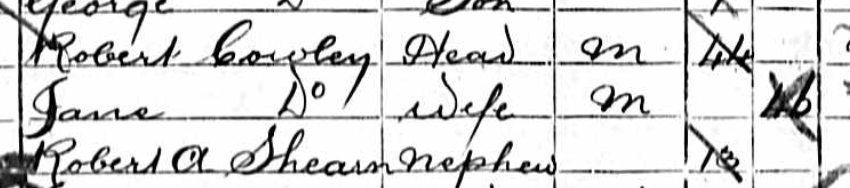 George Do Son
Robert Cowley Head M 44
Jane Do Wife M 46
Robert A Shearn Nephew